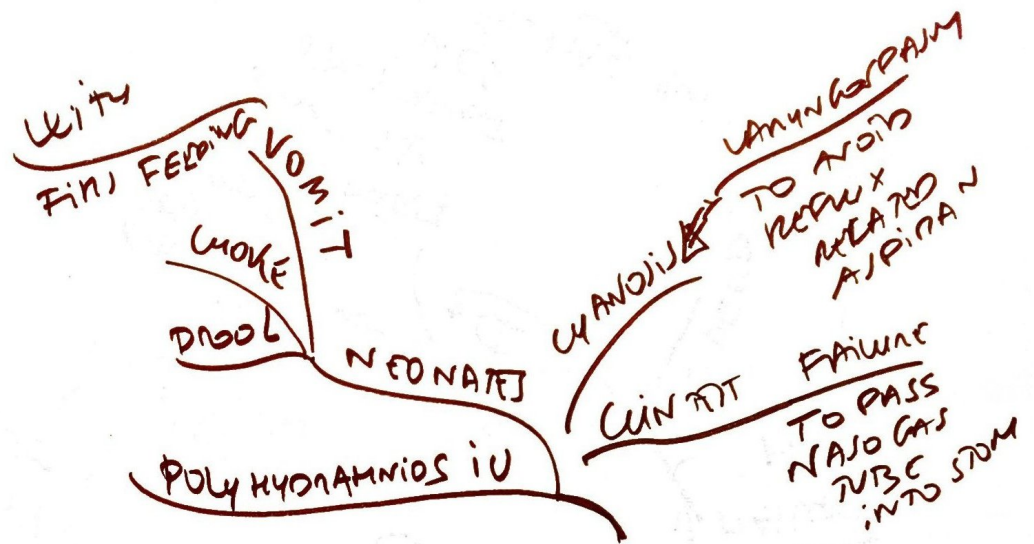 WITH
FIRST FEEDING
VOMIT
CHOKE
DROOL
NEONATES
POLYHYDRAMNIOS IU
CYANOSIS
LARYNGOSPASM
TO AVOID
REFLUX
RELATED
ASPIRAN
CLIN TEST FAILURE
TO PASS
NASOGAS
TUBE
INTO STOM